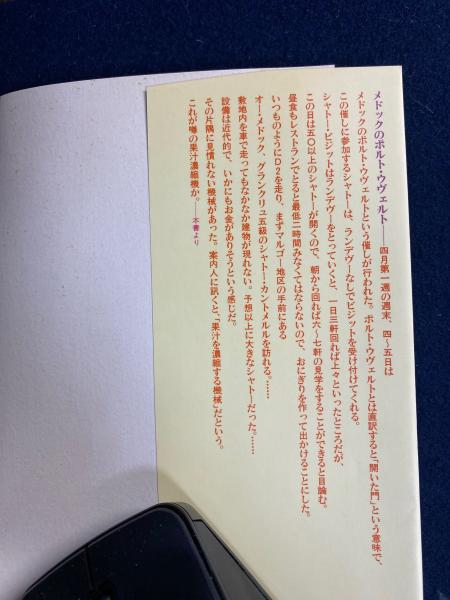 メドックのポルト・ウヴェルト――四月第一週の週末、四~五日は
メドックのポルト・ウヴェルトという催しが行われた。ポルト・ウヴェルトとは直訳すると「開いた門」という意味で、
この催しに参加するシャトーは、ランデヴーなしでビジットを受け付けてくれる。
シャトー・ビジットはランデヴーをとっていくと、一日三軒回れば上々といったところだが、
この日は五〇以上のシャトーが開くので、朝から回れば六~七軒の見学をすることができると目論む。
昼食もレストランでとると最低二時間みなくてはならないので、おにぎりを作って出かけることにした。
いつものようにD2を走り、まずマルゴー地区の手前にある
オー・メドック、グランクリュ五級のシャトー・カントメルルを訪れる。……
敷地内を車で走ってもなかなか建物が現れない。予想以上に大きなシャトーだった。……
設備は近代的で、いかにもお金がありそうという感じだ。
その片隅に見慣れない機械があった。案内人に訊くと、「果汁を濃縮する機械」だという。
これが噂の果汁濃縮機か。――本書より